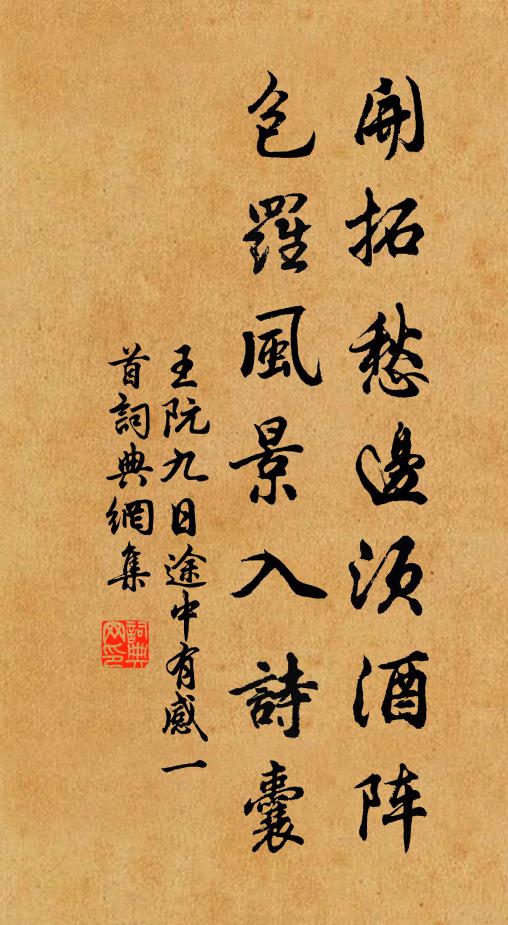 開拓愁邊須酒阵
包羅風景入詩囊
王阮九日途中有感一
首詞典網集
詞典
网印